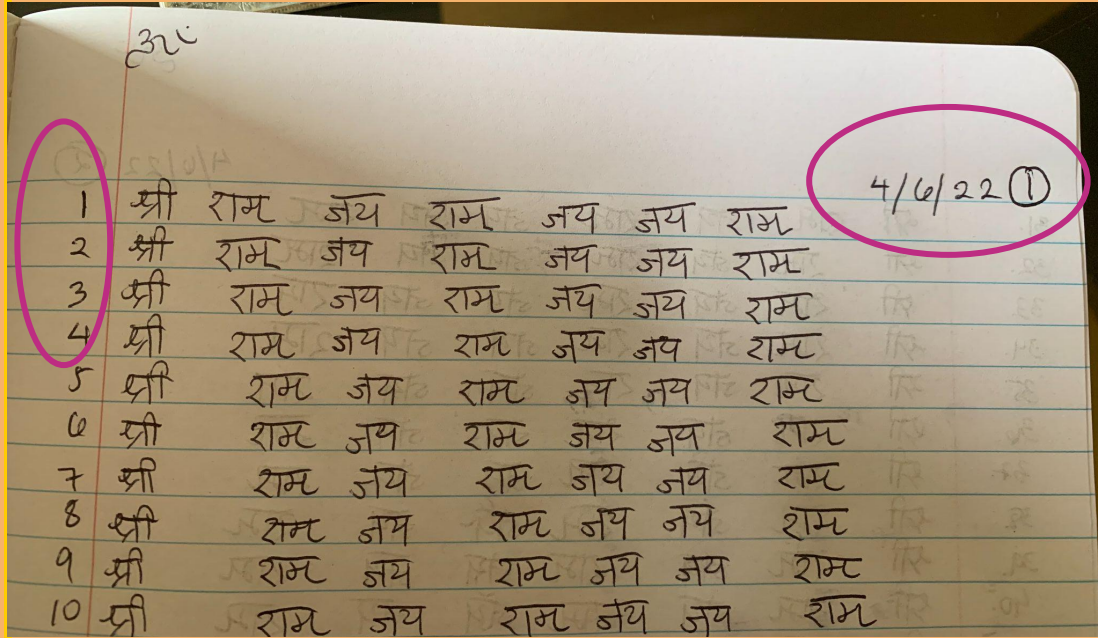 ૐ
4/6/22 ①
1 श्री राम जय राम जय जय राम
2 श्री राम जय राम जय जय राम
3 श्री राम जय राम जय जय राम
4 श्री राम जय राम जय जय राम
5 श्री राम जय राम जय जय राम
6 श्री राम जय राम जय जय राम
7 श्री राम जय राम जय जय राम
8 श्री राम जय राम जय जय राम
9 श्री राम जय राम जय जय राम
10 श्री राम जय राम जय जय राम